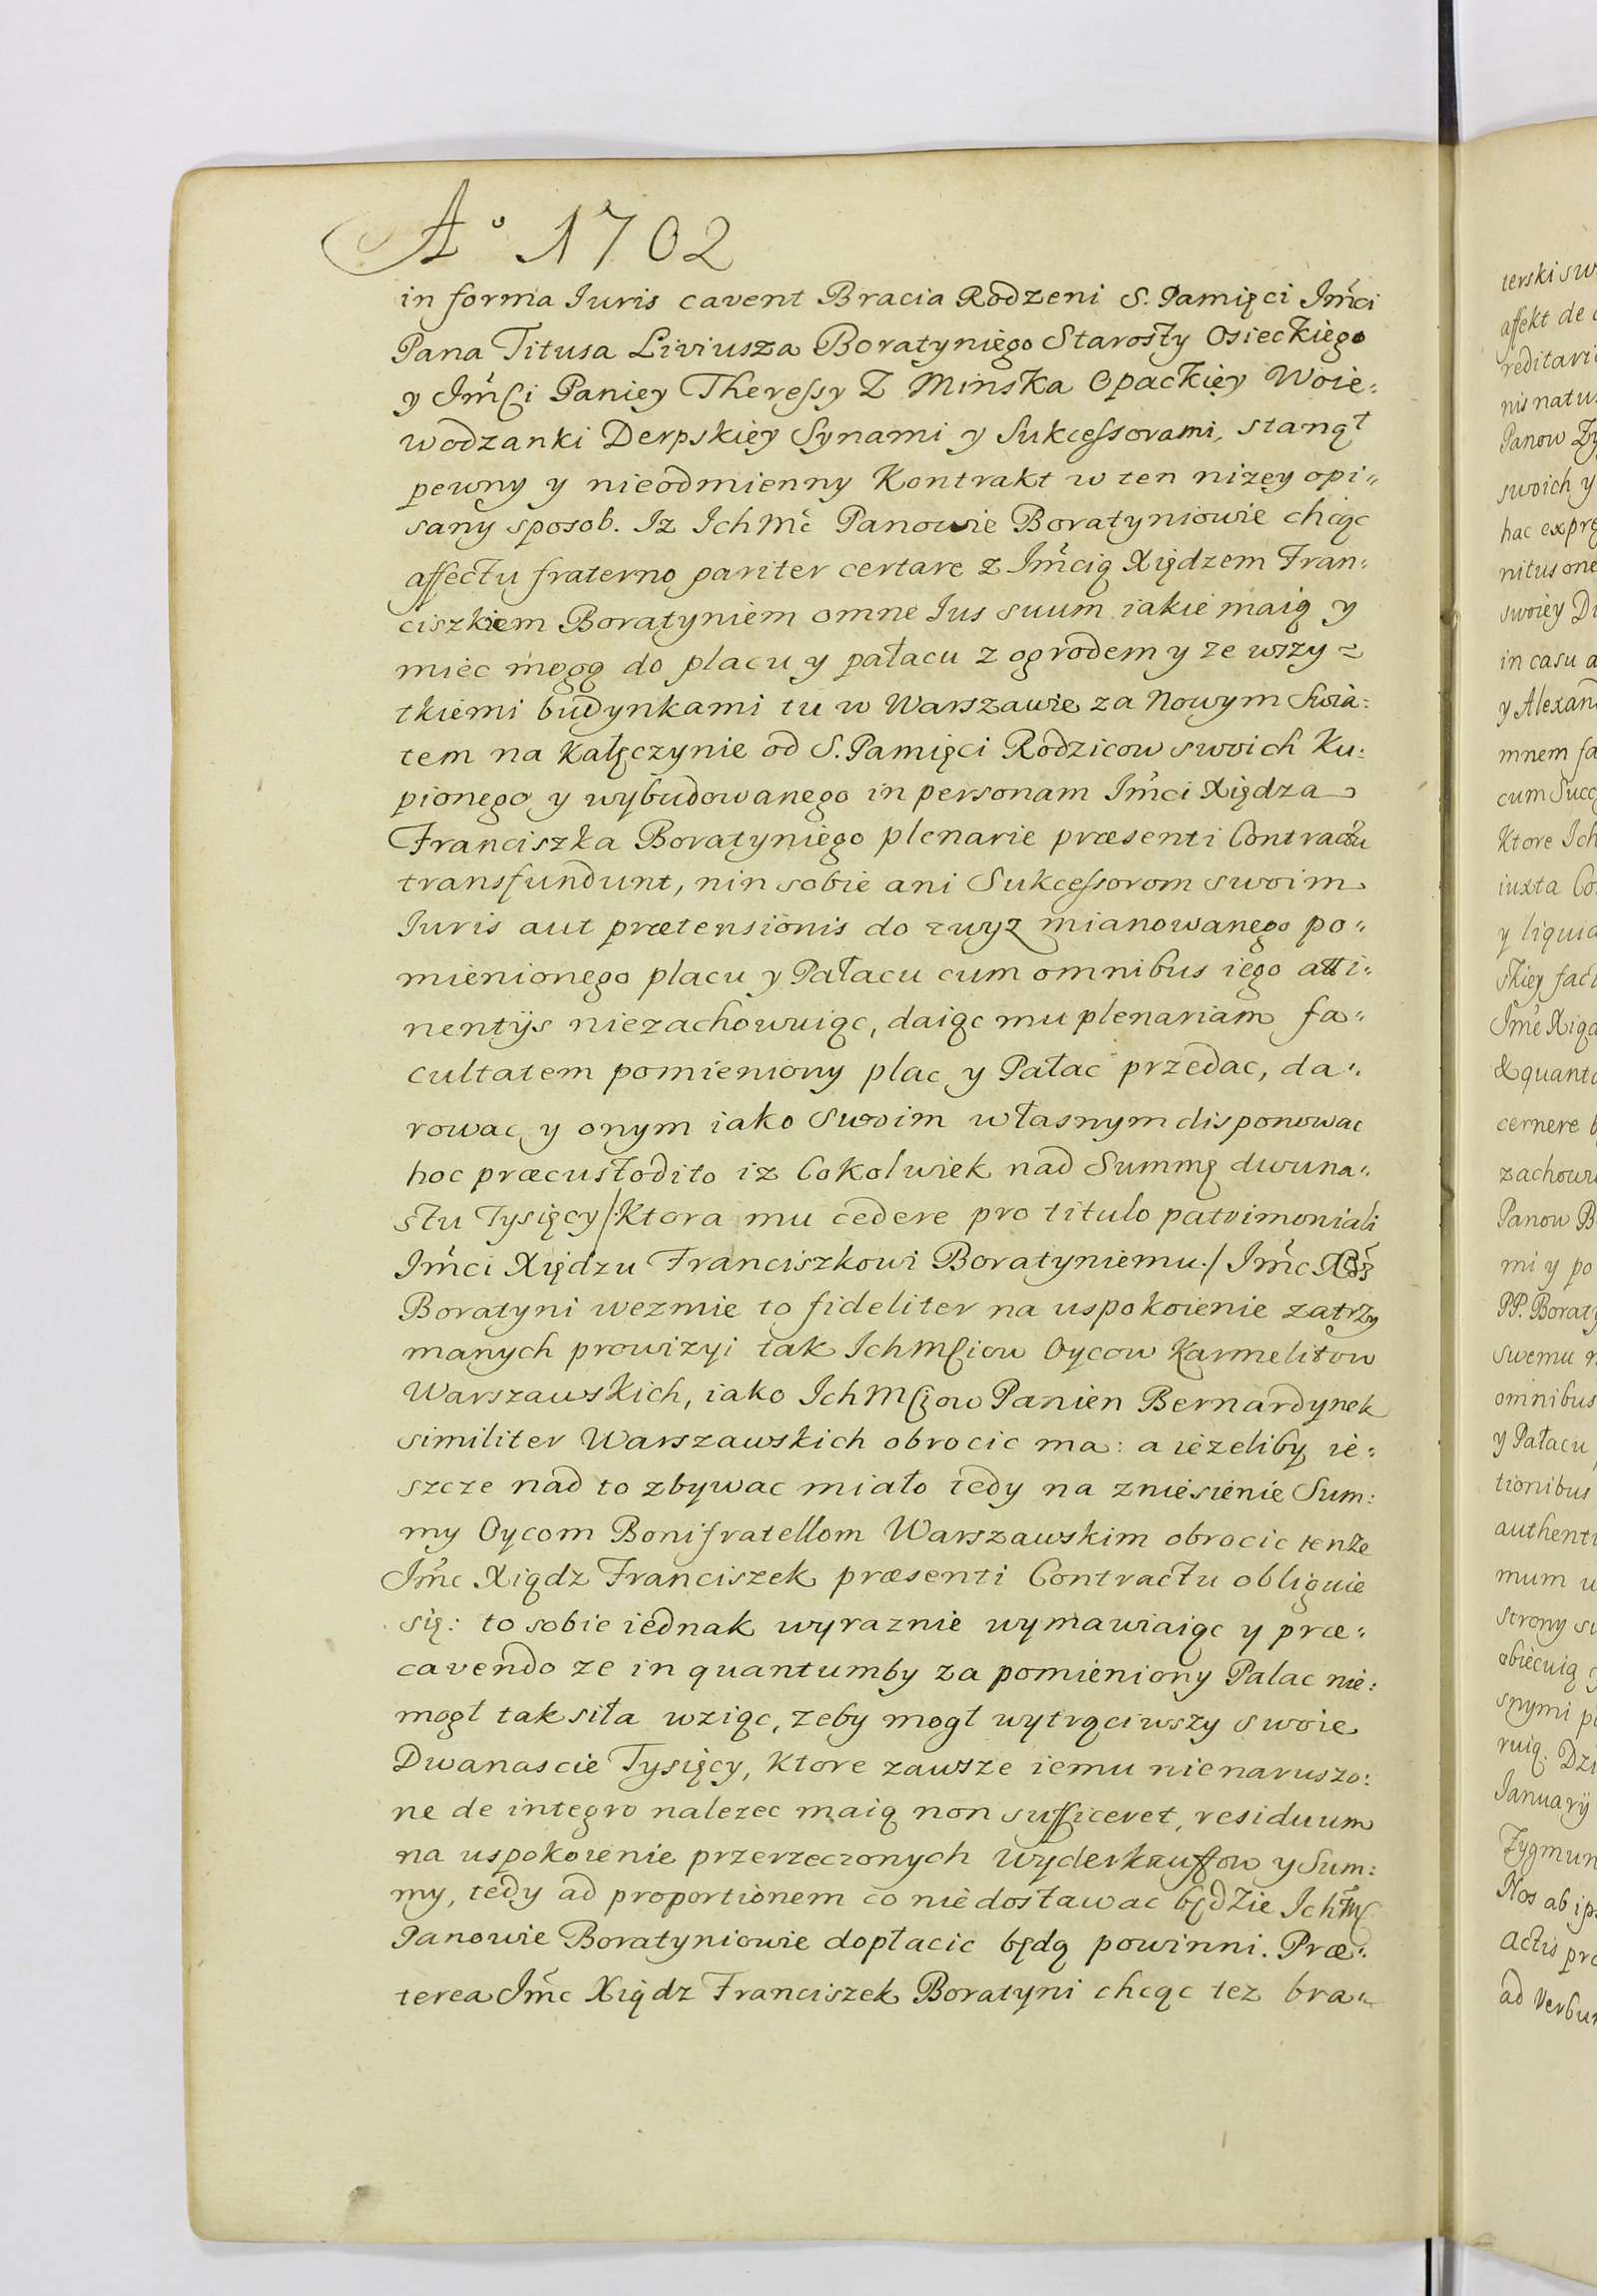 Aº 1702
in forma Iuris cavent Bracia Rodzeni S. Pamięci Imci
Pana Titusa Liviusza Boratyniego Starosty Osieckiego
y Imści Paniey Theressy Z Minska Opackięy Woie:
wodzanki Derpskięy Synami y Sukcessorami, stanął
pewny y nieodmienny Kontrakt w ten niżey opi„
sany sposob. Iz Ich Mc Panowie Boratyniowie chcąc
affectu fraterno pariter certare z Imcią Xiędzem Fran:
ciszkiem Boratyniem omne Ius suum iakie maią y
miec mogą do placu y pałacu z ogrodem y ze wszy=
tkiemi budynkami tu w Warszawie za Nowym Swia:
tem na Kałęczynie od S. Pamięci Rodzicow swoich Ku:
pionego y wybudowanego in personam Imci Xiędza
Franciszka Boratyniego plenarie præsenti Contractu
transfundunt, nin sobie ani Sukcessorom swoim
Iuris aut prætensionis do zwyz mianowanego po„
mienionego placu y Pałacu cum omnibus iego atti„
nentÿs niezachowuiąc, daiąc mu plenariam fa„
cultatem pomieniony plac y Pałac przedac, da„
rowac y onym iako Swoim własnym disponowac
hoc præcustodito iz Cokolwiek nad Summę dwuna„
stu Tysięcy /: Ktora mu cedere pro titulo patrimoniali
Imci Xiędzu Franciszkowi Boratyniemu./ Imc Xdz
Boratyni wezmie to fideliter na uspokoienie zatrzy
manych prowizyi tak Ich Mściow Oycow Karmelitow
Warszawskich, iako Ich Mściow Panien Bernardynek
similiter Warszawskich obrocic ma: a ieżeliby ie:
szcze nad to zbywac miało tedy na zniesienie Sum:
my Oycom Bonifratellom Warszawskim obrocic tenże
Imc Xiądz Franciszek præsenti Contractu obliguie
się: to sobie iednak wyraznie wymawiaiąc y præ„
cavendo ze in quantumby za pomieniony Palac nie:
mogł tak siła wziąc, zeby mogł wytrąciwszy swoie
Dwanascie Tysięcy, Ktore zawsze iemu nienaruszo:
ne de integro nalezec maią non sufficeret, residuum
na uspokoienie przerzeczonych Wyderkauffow y Sum:
my, tedy ad proportionem co nie dostawac będzie Ich Mę
Panowie Boratyniowie dopłacic będą powinni. Præ„
terea Imc Xiądz Franciszek Boratyni chcąc tez bra„
terski sw
affekt de
reditari
nis natu
Panow Zy
swoich y
hac expre
nitus one
swoiey D
in casu a
y Alexan
mnem fa
cum Succ
Ktore Ich
iuxta Co
y liquid
skiey fac
Imc Xiąd
& quanto
cernere
zachow
Panow B
mi y po
PP. Boraty
swemu
omnibus
y Pałacu
tionibus
authenti
mum
strony s
obiecuią
snymi p
ruią. Dzi
Ianuarÿ
Zygmun
Nos ab ip
Actis pr
ad Verbu